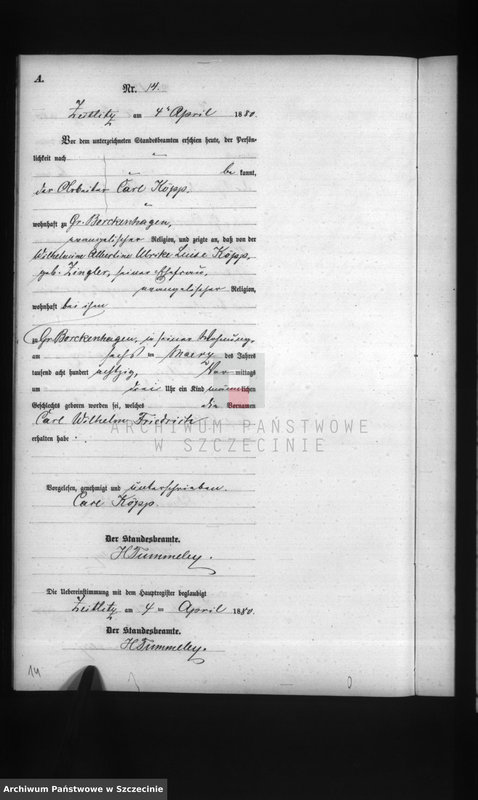 A.
Nr. 14.
Zeitlitz am 4ᵗ April 1880.
Vor dem unterzeichneten Standesbeamten erschien heute, der Persön-
lichkeit nach
be kannt,
der Arbeiter Carl Köpp.
wohnhaft zu Gr. Borckenhagen,
evangelischer Religion, und zeigte an, daß von der
Wilhelmine Albertine Ulrike Luise Köpp,
geb. Zingler, seiner Ehefrau,
evangelischer Religion,
wohnhaft bei ihm
zu Gr. Borckenhagen, in seiner Wohnung,
am sechs ten Maerz des Jahres
tausend acht hundert achtzig, Vor mittags
um drei Uhr ein Kind männlichen
Geschlechts geboren worden sei, welches die Vornamen
Carl Wilhelm Friedrich
erhalten habe.
ARCHIWUM PAŃSTWOWE
W SZCZECINIE
Vorgelesen, genehmigt und unterschrieben.
Carl Köpp.
Der Standesbeamte.
H Tummeley.
Die Uebereinstimmung mit dem Hauptregister beglaubigt
Zeitlitz am 4 ten April 1880.
Der Standesbeamte.
H Tummeley.
14
Archiwum Państwowe w Szczecinie